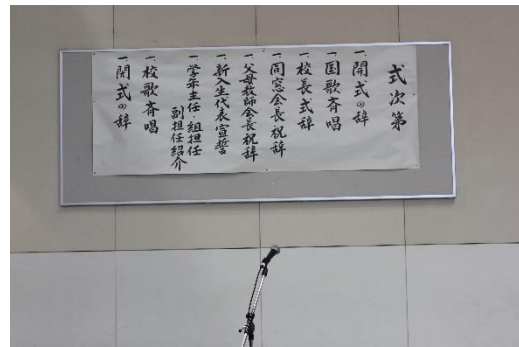 式次第
一、開式の辞
一、国歌斉唱
一、校長式辞
一、同窓会長祝辞
一、父母教師会長祝辞
一、新入生代表宣誓
一、学年主任・組担任
副担任紹介
一、校歌斉唱
一、閉式の辞